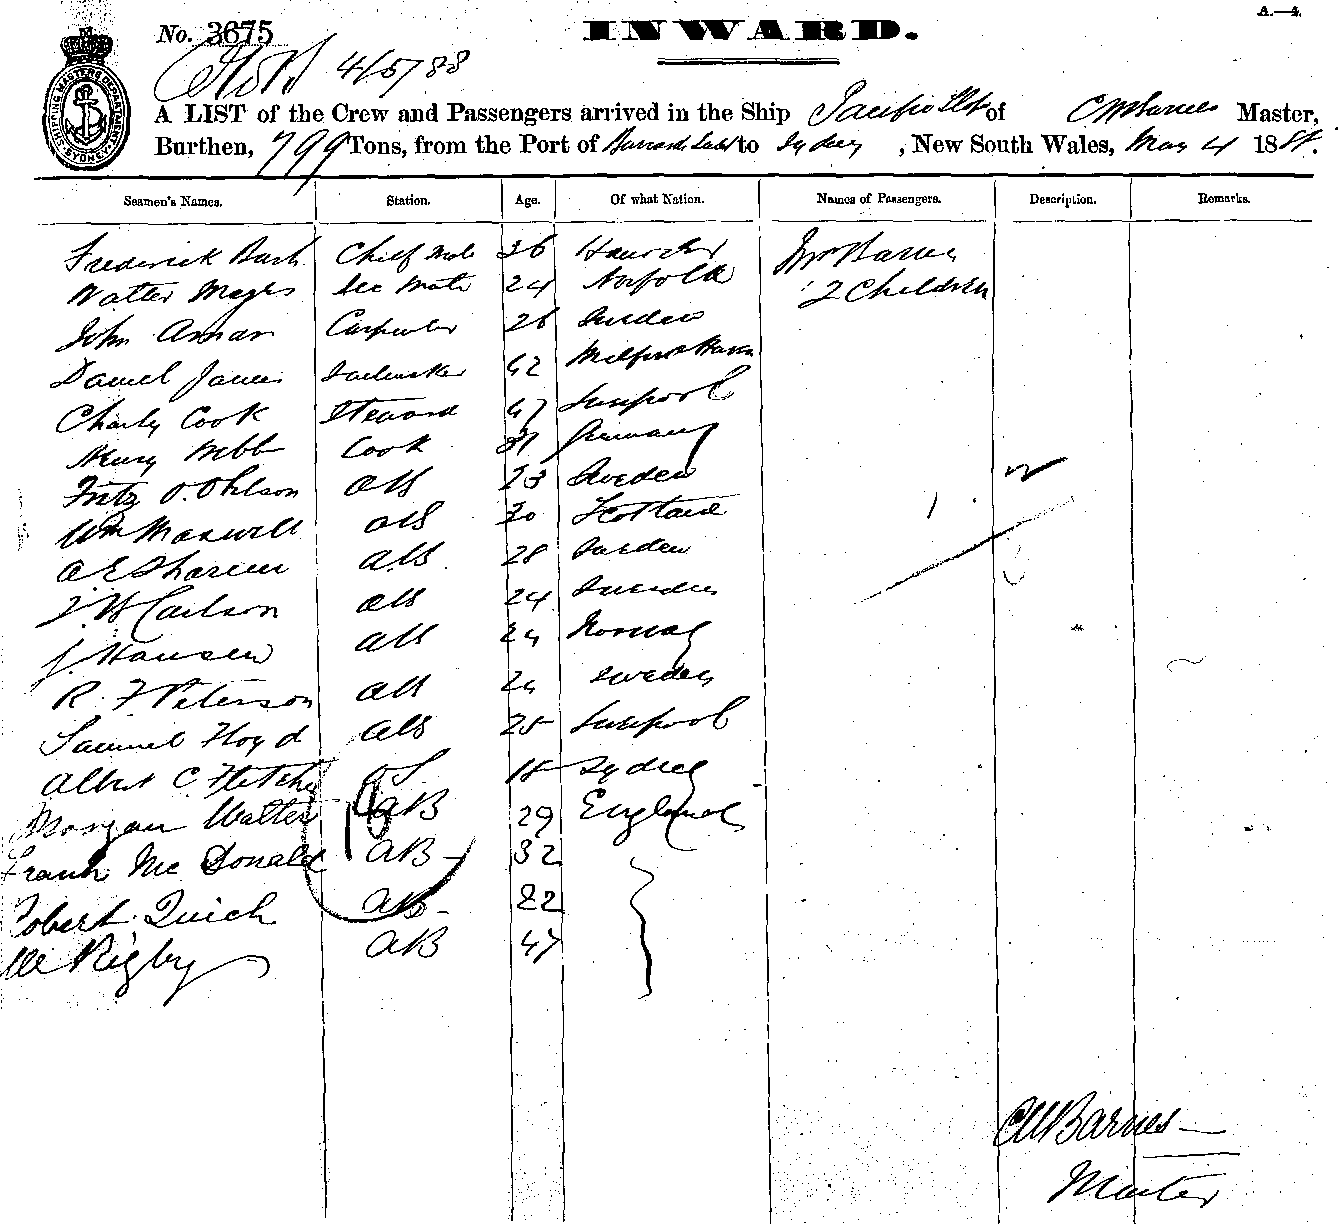 A.—4.
No. 3675 INWARD.
4/5/88
A LIST of the Crew and Passengers arrived in the Ship Pacific Slope of C W Barnes Master,
Burthen, 799 Tons, from the Port of Burrard Inlet to Sydney, New South Wales, May 4 1888.
SHIPPING MASTERS DEPARTMENT SYDNEY
Seamen's Names. Station. Age. Of what Nation. Names of Passengers. Description. Remarks.
Frederick Chief Mate 36 Mrs Barnes
Walter Sec Mate 24 Norfolk 2 Children
John Carpenter 26 Sweden
Daniel James Sailmaker 42 Milford Haven
Charly Cook Steward 47 Liverpool
Henry Webb Cook Germany
Fritz O. Ohlson AB 23 Sweden
Wm Maxwell AB 30 Scotland
A E AB 28 Sweden
J W Carlson AB 24 Sweden
J. Hansen AB 24 Norway
R. F Peterson AB 24 Sweden
Samuel Floyd AB 25 Liverpool
Albert C. Fletcher OS 18 Sydney
18
Morgan Walter AB 29 England
Frank Mc Donald AB 32
Robert Quich AB 22
Rigby AB 47
C W Barnes
Master